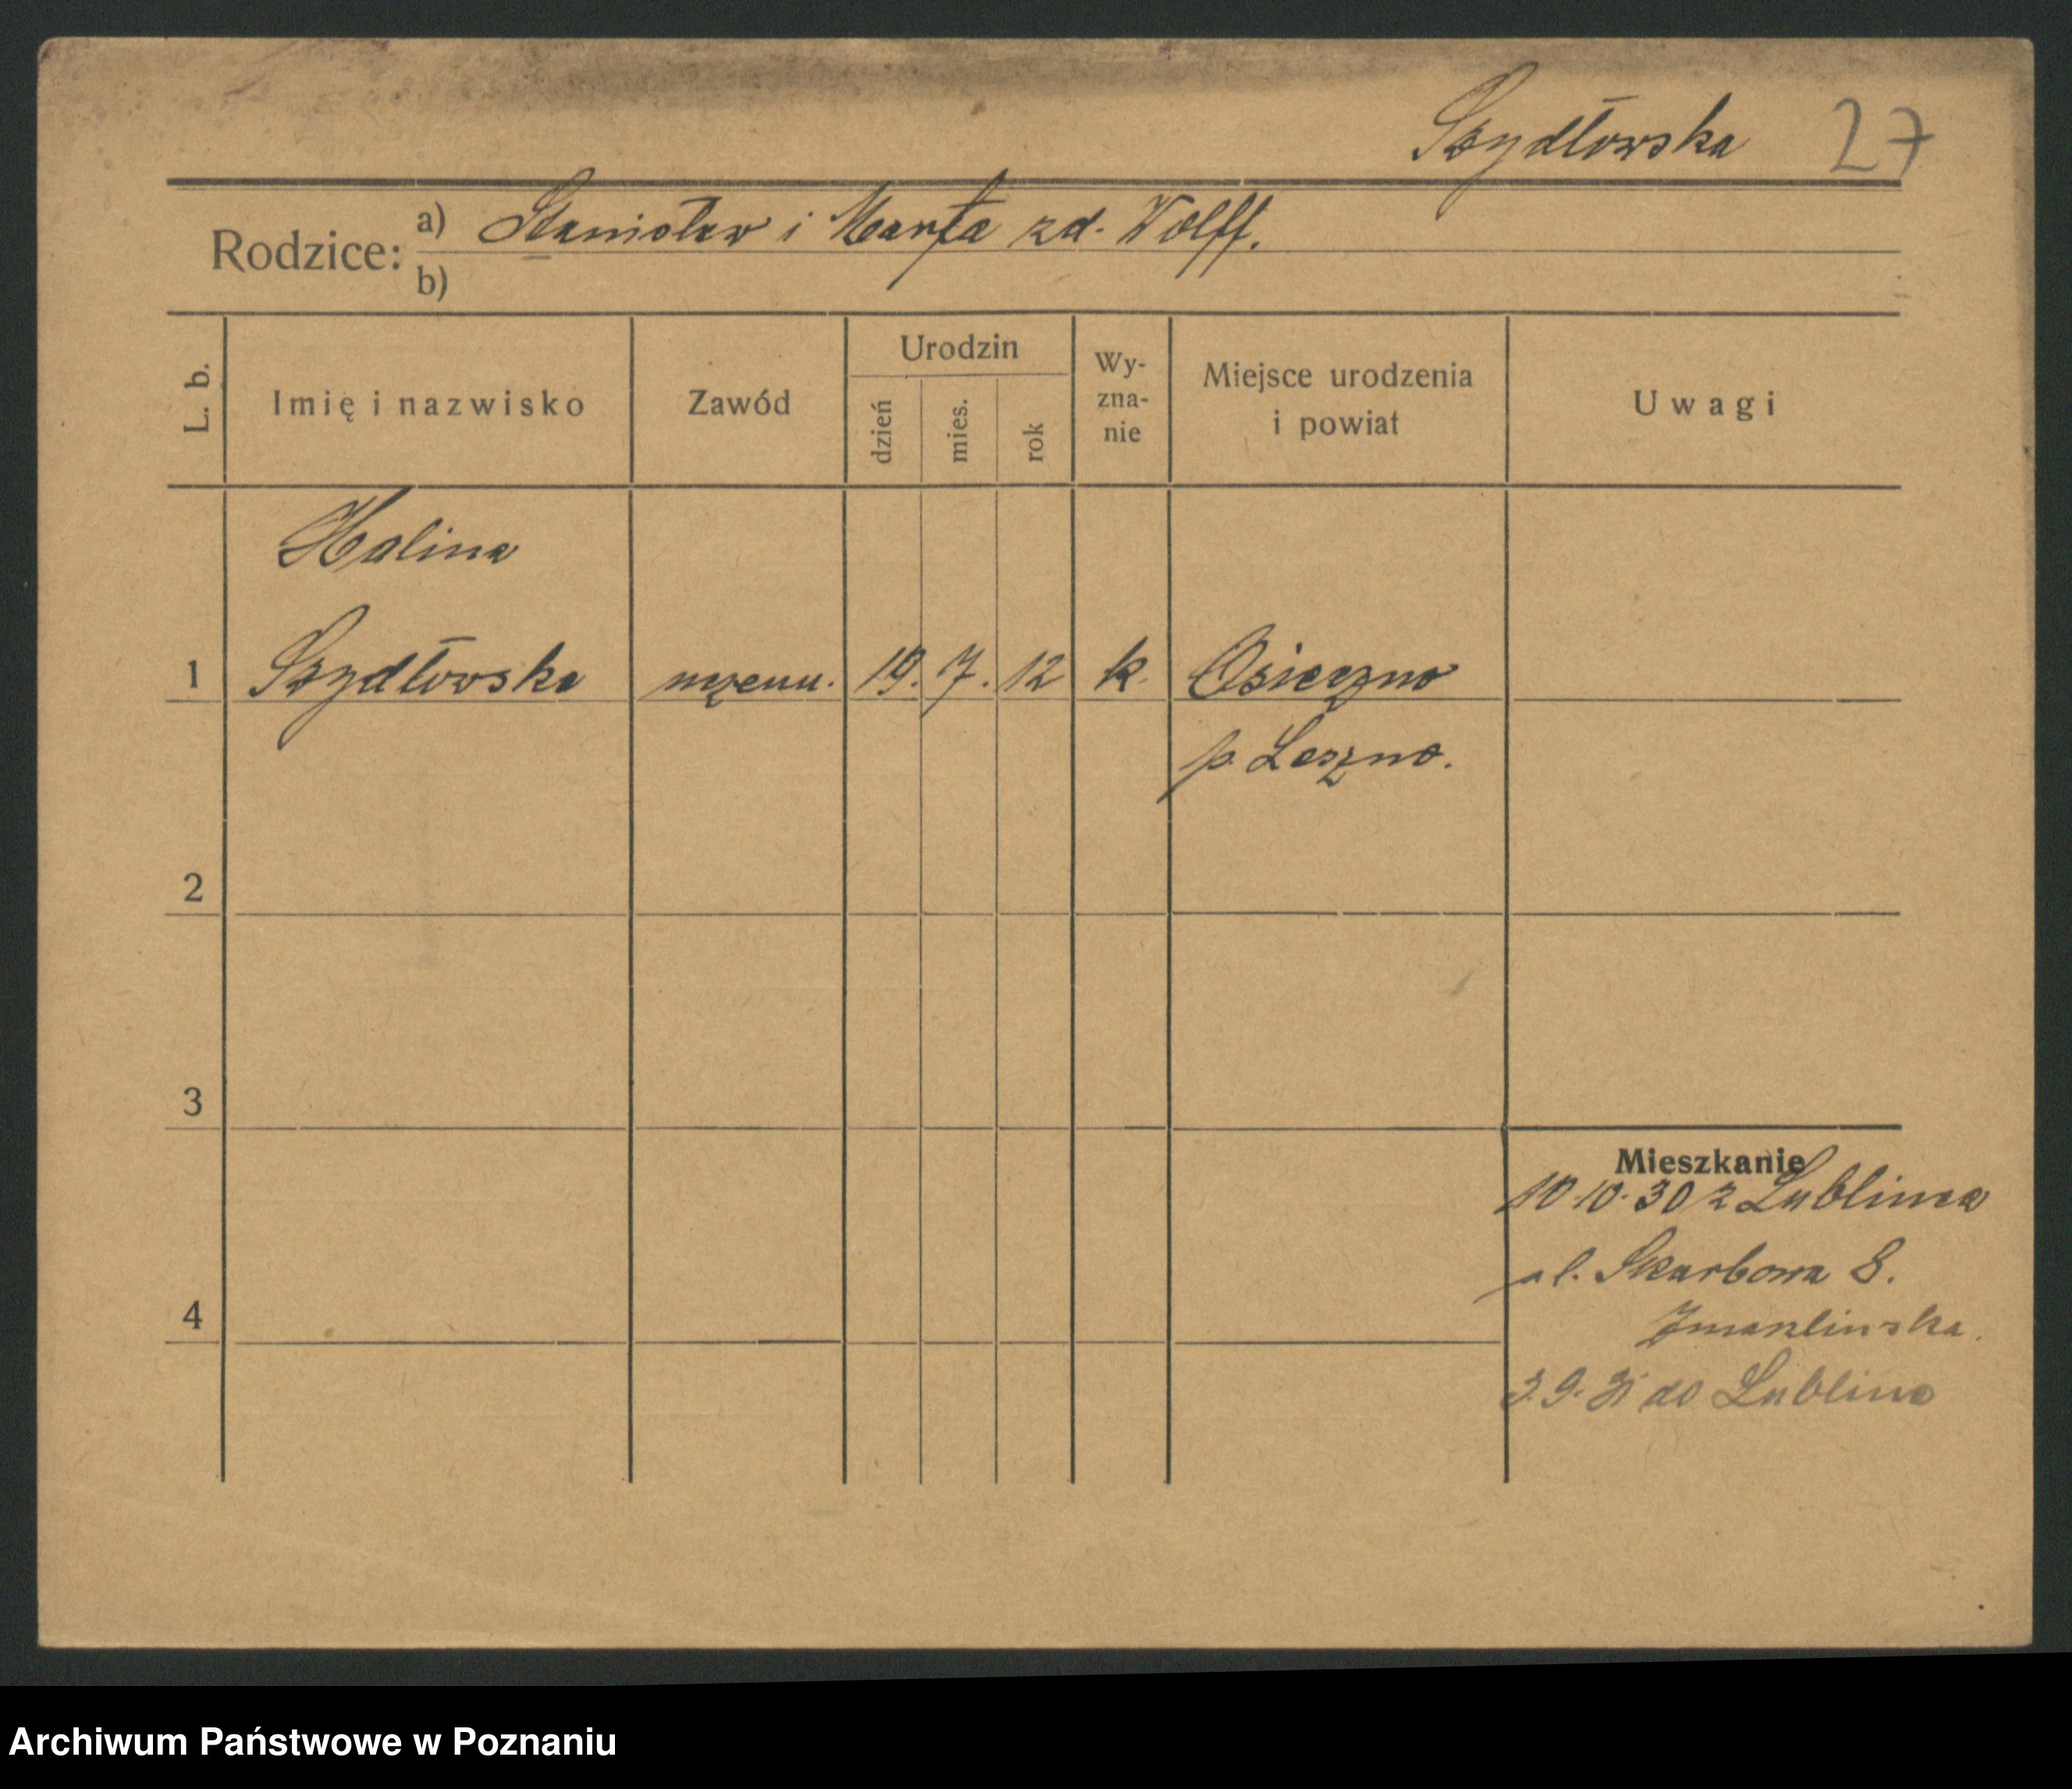 Szydłowska 27
Rodzice: a) Stanisław i Marta zd. Wolff.
b)
L. b. Imię i nazwisko Zawód Urodzin dzień mies. rok Wy-zna-nie Miejsce urodzenia i powiat Uwagi
Halina
1 Szydłowska uczenn. 19. 7. 12 k. Osieczno
p. Leszno.
2
3
Mieszkanie
10.10.30 z Lublina
ul. Skarbowa 8.
4
3.9.31 do Lublina
Archiwum Państwowe w Poznaniu